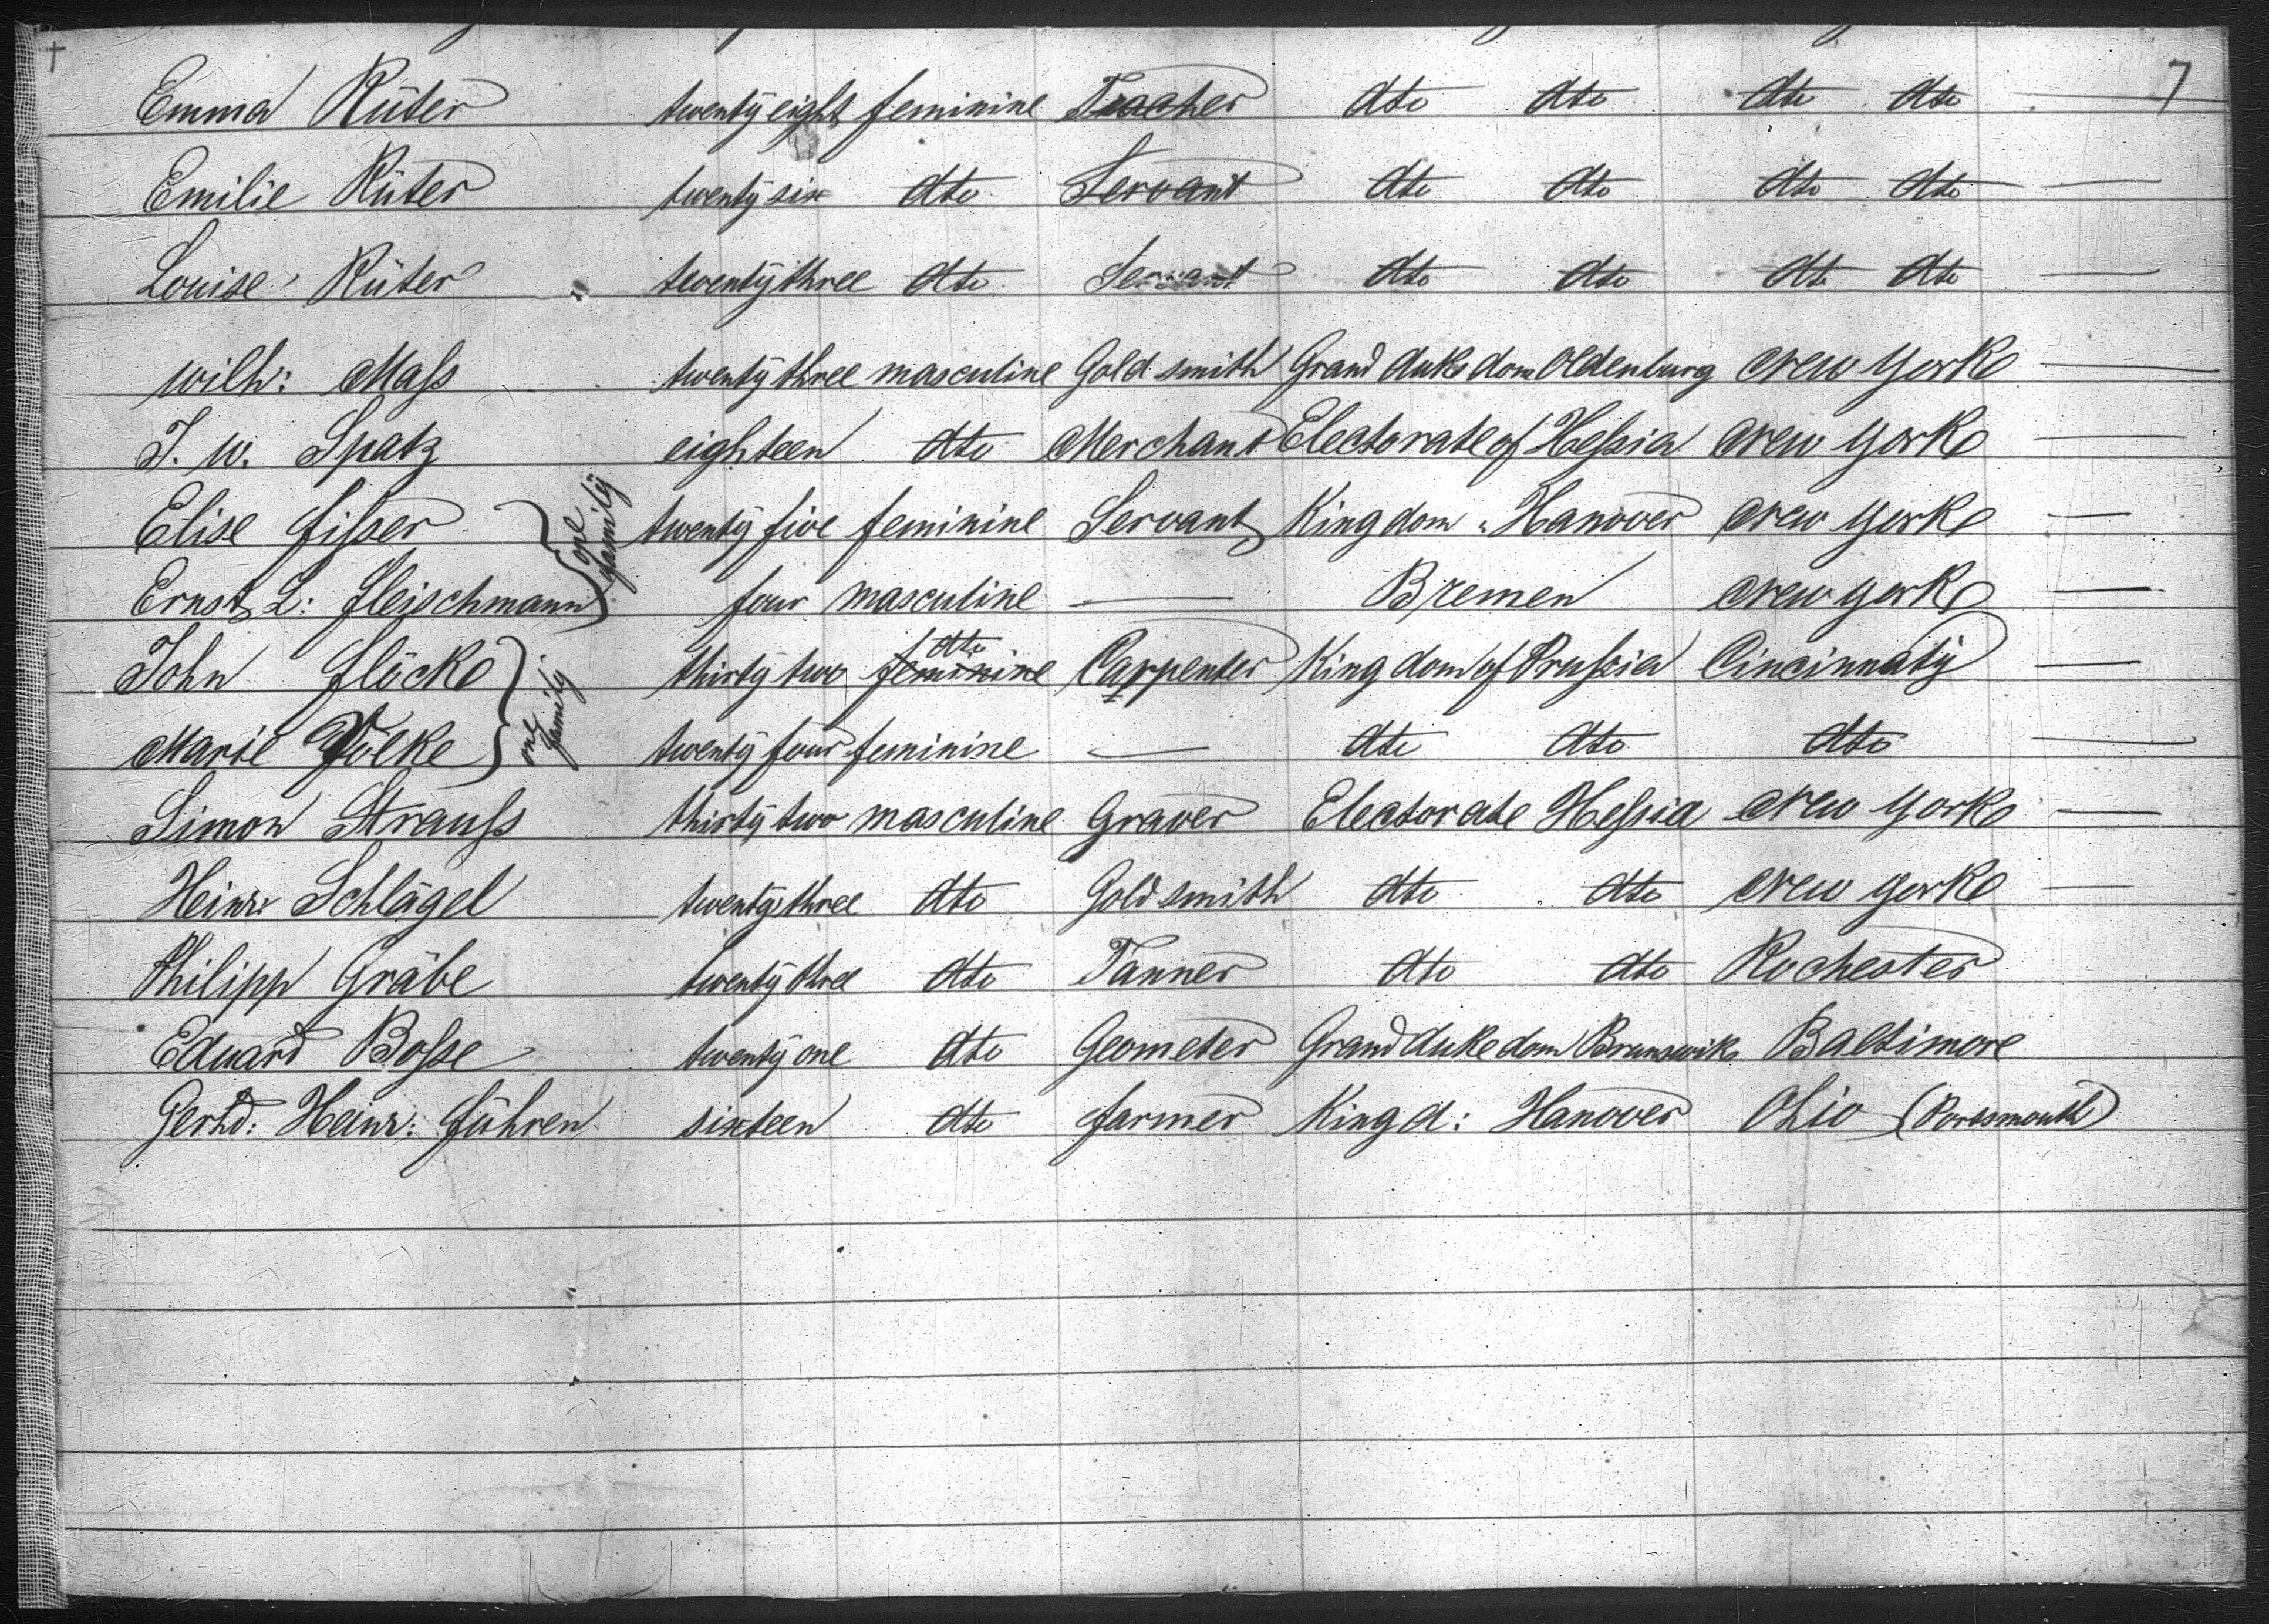 7
Emma Rüter twenty eight feminine Teacher dto dto dto dto —
Emilie Rüter twenty six dto Servant dto dto dto dto —
Louise Rüter twenty three dto Servant dto dto dto dto —
Wilh: Maſs twenty three masculine Gold smith Grand dukedom Oldenburg New York —
J. W. Spatz eighteen dto Merchant Electorate of Heſsia New York —
Elise Fiſser } one family twenty five feminine Servant Kingdom " Hanover New York —
Ernst L: Fleischmann four masculine — Bremen New York —
John Flöcke } one family thirty two feminine dto Carpenter Kingdom of Pruſsia Cincinnaty —
Marie Völke twenty four feminine — dto dto dto —
Simon Strauſs thirty two masculine Graver Electorate Heſsia New York —
Heinr: Schlägel twenty three dto Gold smith dto dto New York —
Philipp Gräbe twenty three dto Tanner dto dto Rochester
Eduard Boſse twenty one dto Geometer Grand dukedom Brunswik Baltimore
Gerhd: Heinr: Führen sixteen dto farmer Kingd: Hanover Ohio (Portsmouth)